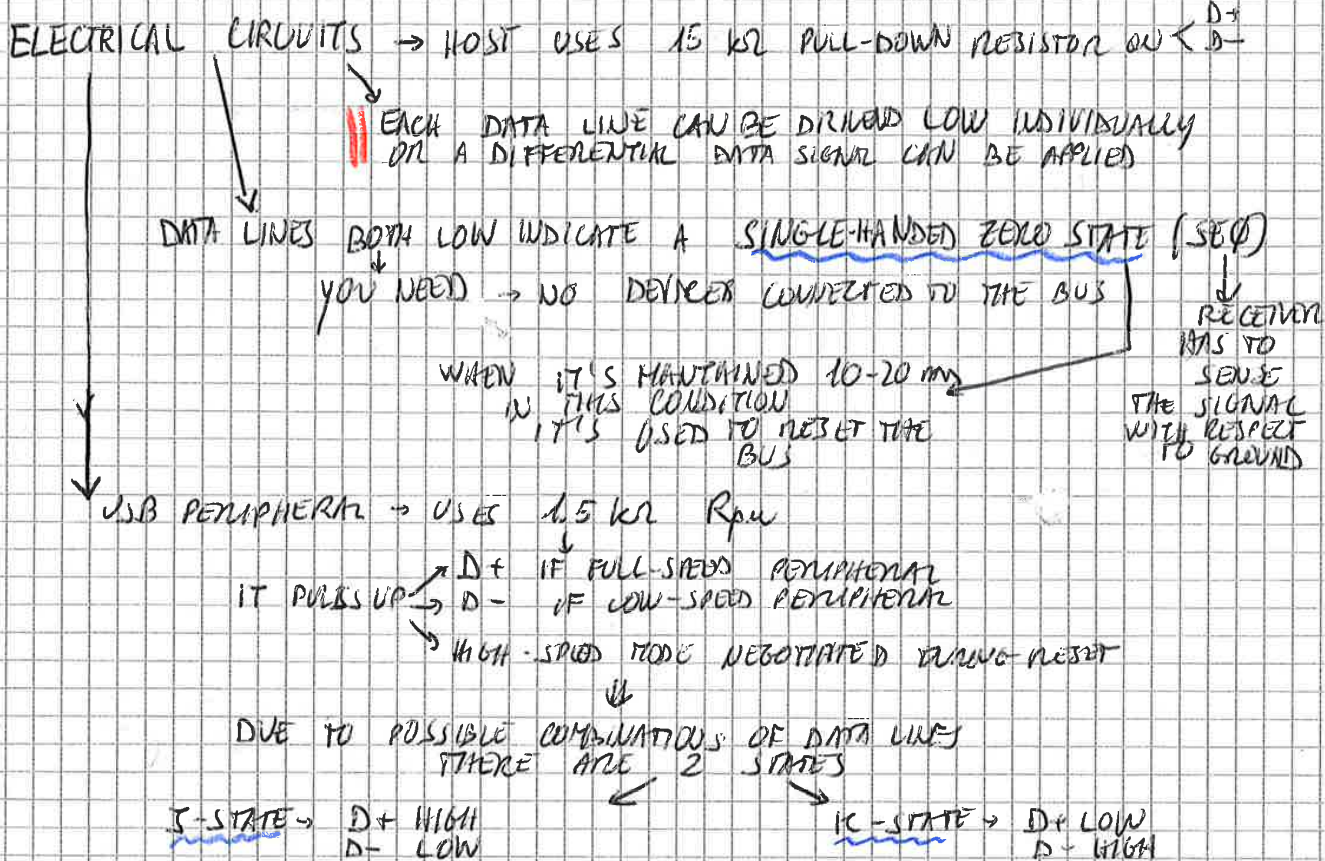 ELECTRICAL CIRUUITS → HOST USES 15 kΩ PULL-DOWN RESISTOR ON < D+ D-
EACH DATA LINE CAN BE DRIVEND LOW INDIVIDUALLY
OR A DIFFERENTIAL DATA SIGNAL CAN BE APPLIED
DATA LINES BOTH LOW INDICATE A SINGLE-HANDED ZERO STATE (SEØ)
YOU NEED → NO DEVICES CONNECTED TO THE BUS
RECEIVER
HAS TO
SENSE
THE SIGNAL
WITH RESPECT
TO GROUND
WHEN IT'S MANTAINED 10-20 ms
IN THIS CONDITION
IT'S USED TO RESET THE
BUS
USB PERIPHERAL → USES 1.5 kΩ Rpu
IT PULLS UP → D+ IF FULL-SPEED PERIPHERAL
→ D- IF LOW-SPEED PERIPHERAL
→ HIGH-SPEED MODE NEGOTIATED DURING RESET
DUE TO POSSIBLE COMBINATIONS OF DATA LINES
THERE ARE 2 STATES
J-STATE → D+ HIGH
D- LOW
K-STATE → D+ LOW
D- HIGH